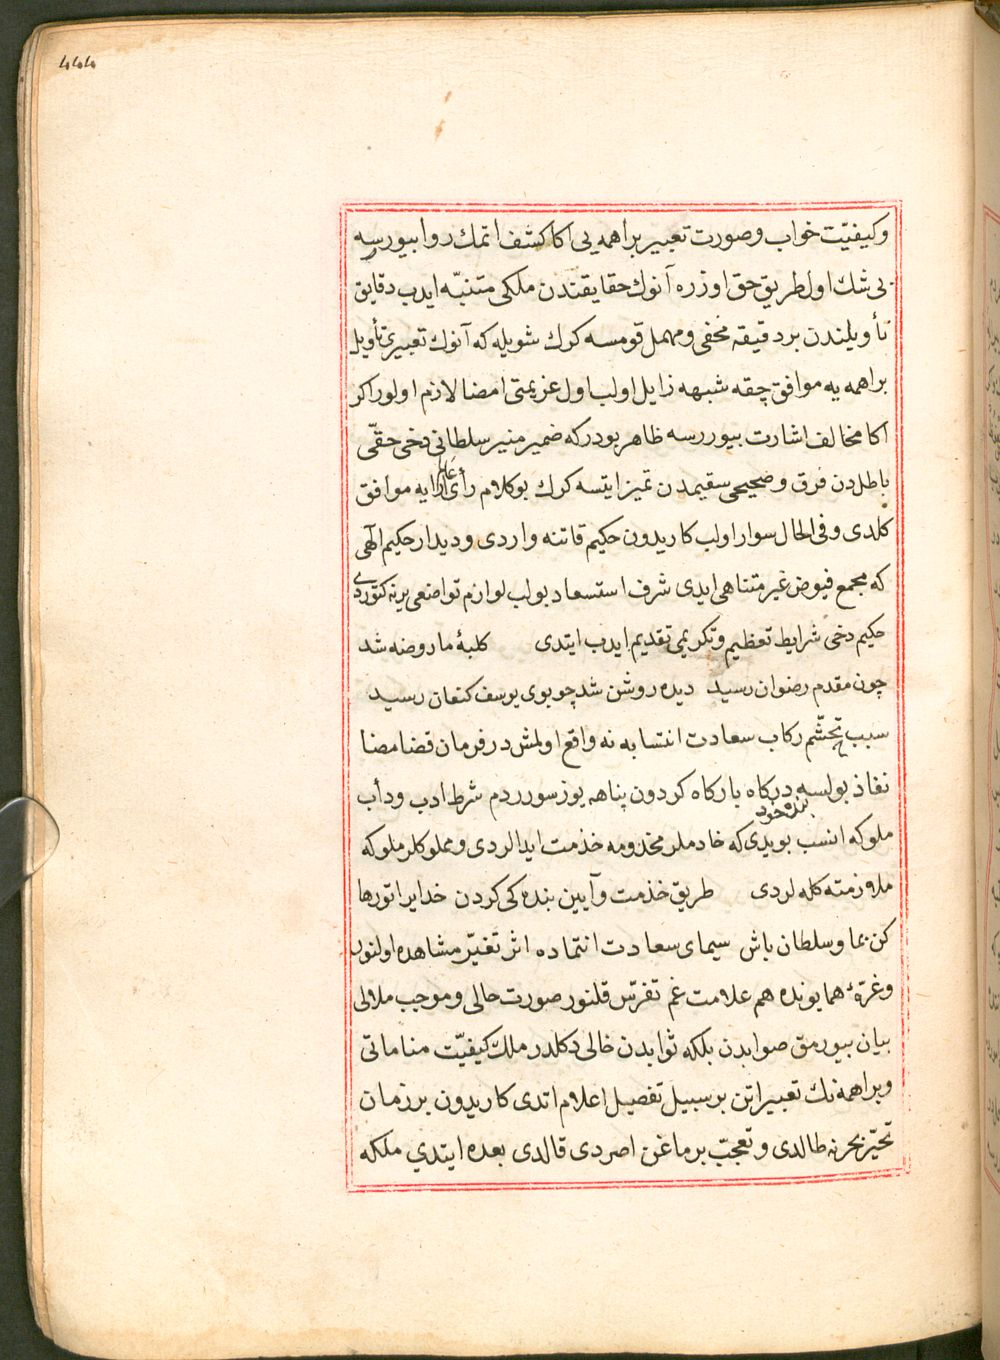 ٤٤٤
وكيفيّت خواب وصورت تعبير براهمه يى اكا كشف اتمك روا بيورسه
بى شك اول طريق حق اوزره آنوك حقايقندن ملكى متنبّه ايدب دقايق
تأويلندن بر دقيقه مخفى ومهمل قومسه كرك شويله كه آنوك تعبيرى تأويل
براهمه يه موافق چقه شبهه زايل اولب اول عزيمتى امضا لازم اولور اكر
اكا مخالف اشارت بيوررسه ظاهر بودر كه ضمير منير سلطانى دخى حقّى
باطلدن فرق وصحيحى سقيمدن تميز ايتسه كرك بو كلام رأى عالم آرايه موافق
كلدى وفى الحال سوار اولب كاريدون حكيم قاتنه واردى وديدار حكيم الهى
كه مجمع فيوض غير متناهى ايدى شرف استسعاد بولب لوازم تواضعى يرنه كتوردى
حكيم دخى شرايط تعظيم وتكريمى تقديم ايدب ايتدى كلبهٔ ما روضه شد
چون مقدم رضوان رسيد ديده روشن شد چو بوى يوسف كنعان رسيد
سبب تجشّم ركاب سعادت انتسابه نه واقع اولمش در فرمان قضا مضا
نفاذ بولسه دركاه باركاه كردون پناهه يوز سورردم شرط ادب ودأب
ملوكه انسب بويدى كه خادملر مخدومه خذمت ايدالردى ومملوكلر ملوكه
بنده خود
ملازمته كله لردى طريق خذمت وآيين بنده كى كردن خدايرا تو رها
كن بما وسلطان باش سيماى سعادت انتماده اثر تغيّر مشاهده اولنور
وغرّهٔ همايونده هم علامت غم تفرّس قلنور صورت حالى وموجب ملالى
بيان بيورمق صوابدن بلكه ثوابدن خالى دكلدر ملك كيفيّت مناماتى
وبراهمه نك تعبيراتن بر سبيل تفصيل اعلام اتدى كاريدون بر زمان
تحيّر بحرنه طالدى وتعجّب برماغن اصردى قالدى بعده ايتدي ملكه